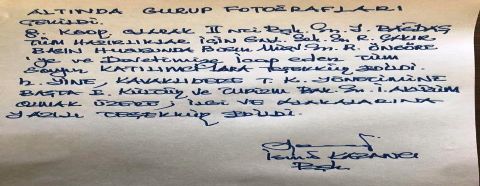 ALTINDA GURUP FOTOĞRAFLARI
ÇEKİLDİ.
g. KOOP. OLARAK II nci Bşk. Sn. Y. BAĞDAŞ
TÜM HAZIRLIKLAR İÇİN Sn. R. ÇAKIR
BASIN Sn. R. ÖNGÖRE
'ye ve Davetimize icap eden TÜM
Sayın KATILIMCILARA TEŞEKKÜR EDİLDİ.
h. YİNE, KAVAKLIDERE T. K. YÖNETİMİNE
BAŞTA E. KÜLTÜR ve TURİZM BAK. Sn. İ.
OLMAK ÜZERE, İLGİ VE ALAKALARINA
YAZILI TEŞEKKÜR EDİLDİ.
KABANCI
Bşk.